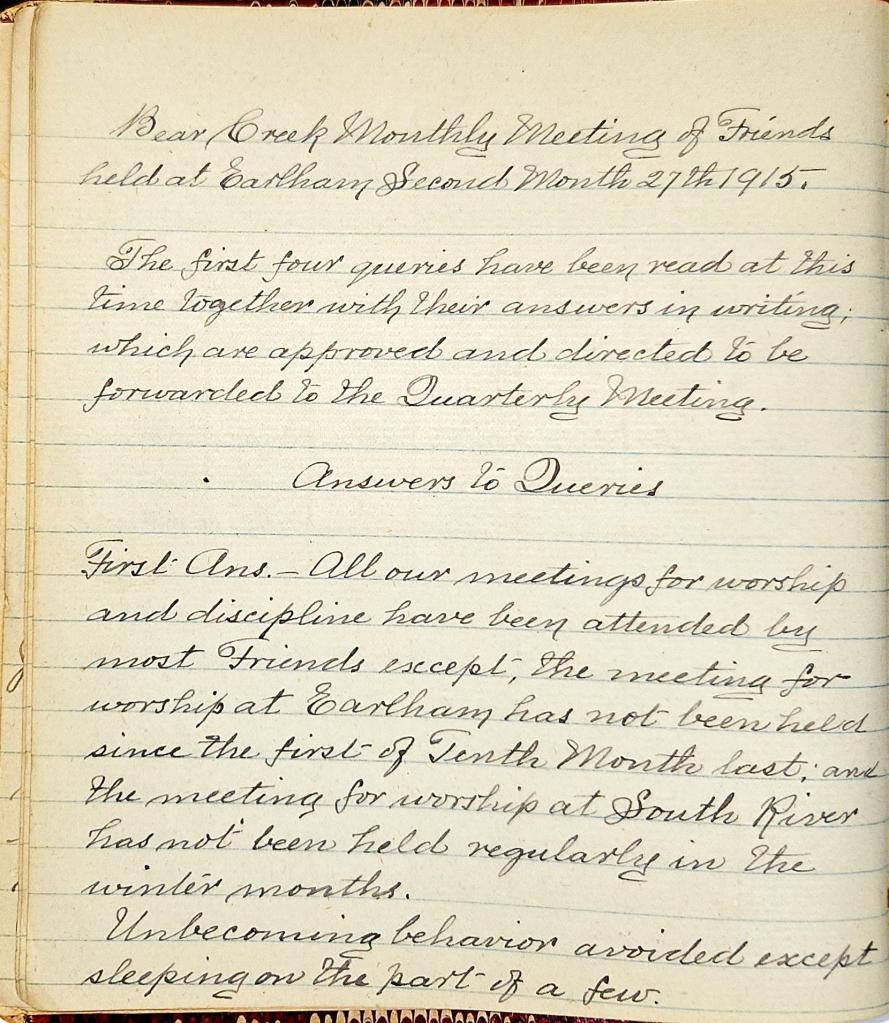 Bear Creek Monthly Meeting of Friends
held at Earlham Second Month 27th 1915.
The first four queries have been read at this
time together with their answers in writing;
which are approved and directed to be
forwarded to the Quarterly Meeting.
Answers to Queries
First Ans. – All our meetings for worship
and discipline have been attended by
most Friends except, the meeting for
worship at Earlham has not been held
since the first of Tenth Month last; and
the meeting for worship at South River
has not been held regularly in the
winter months.
Unbecoming behavior avoided except
sleeping on the part of a few.